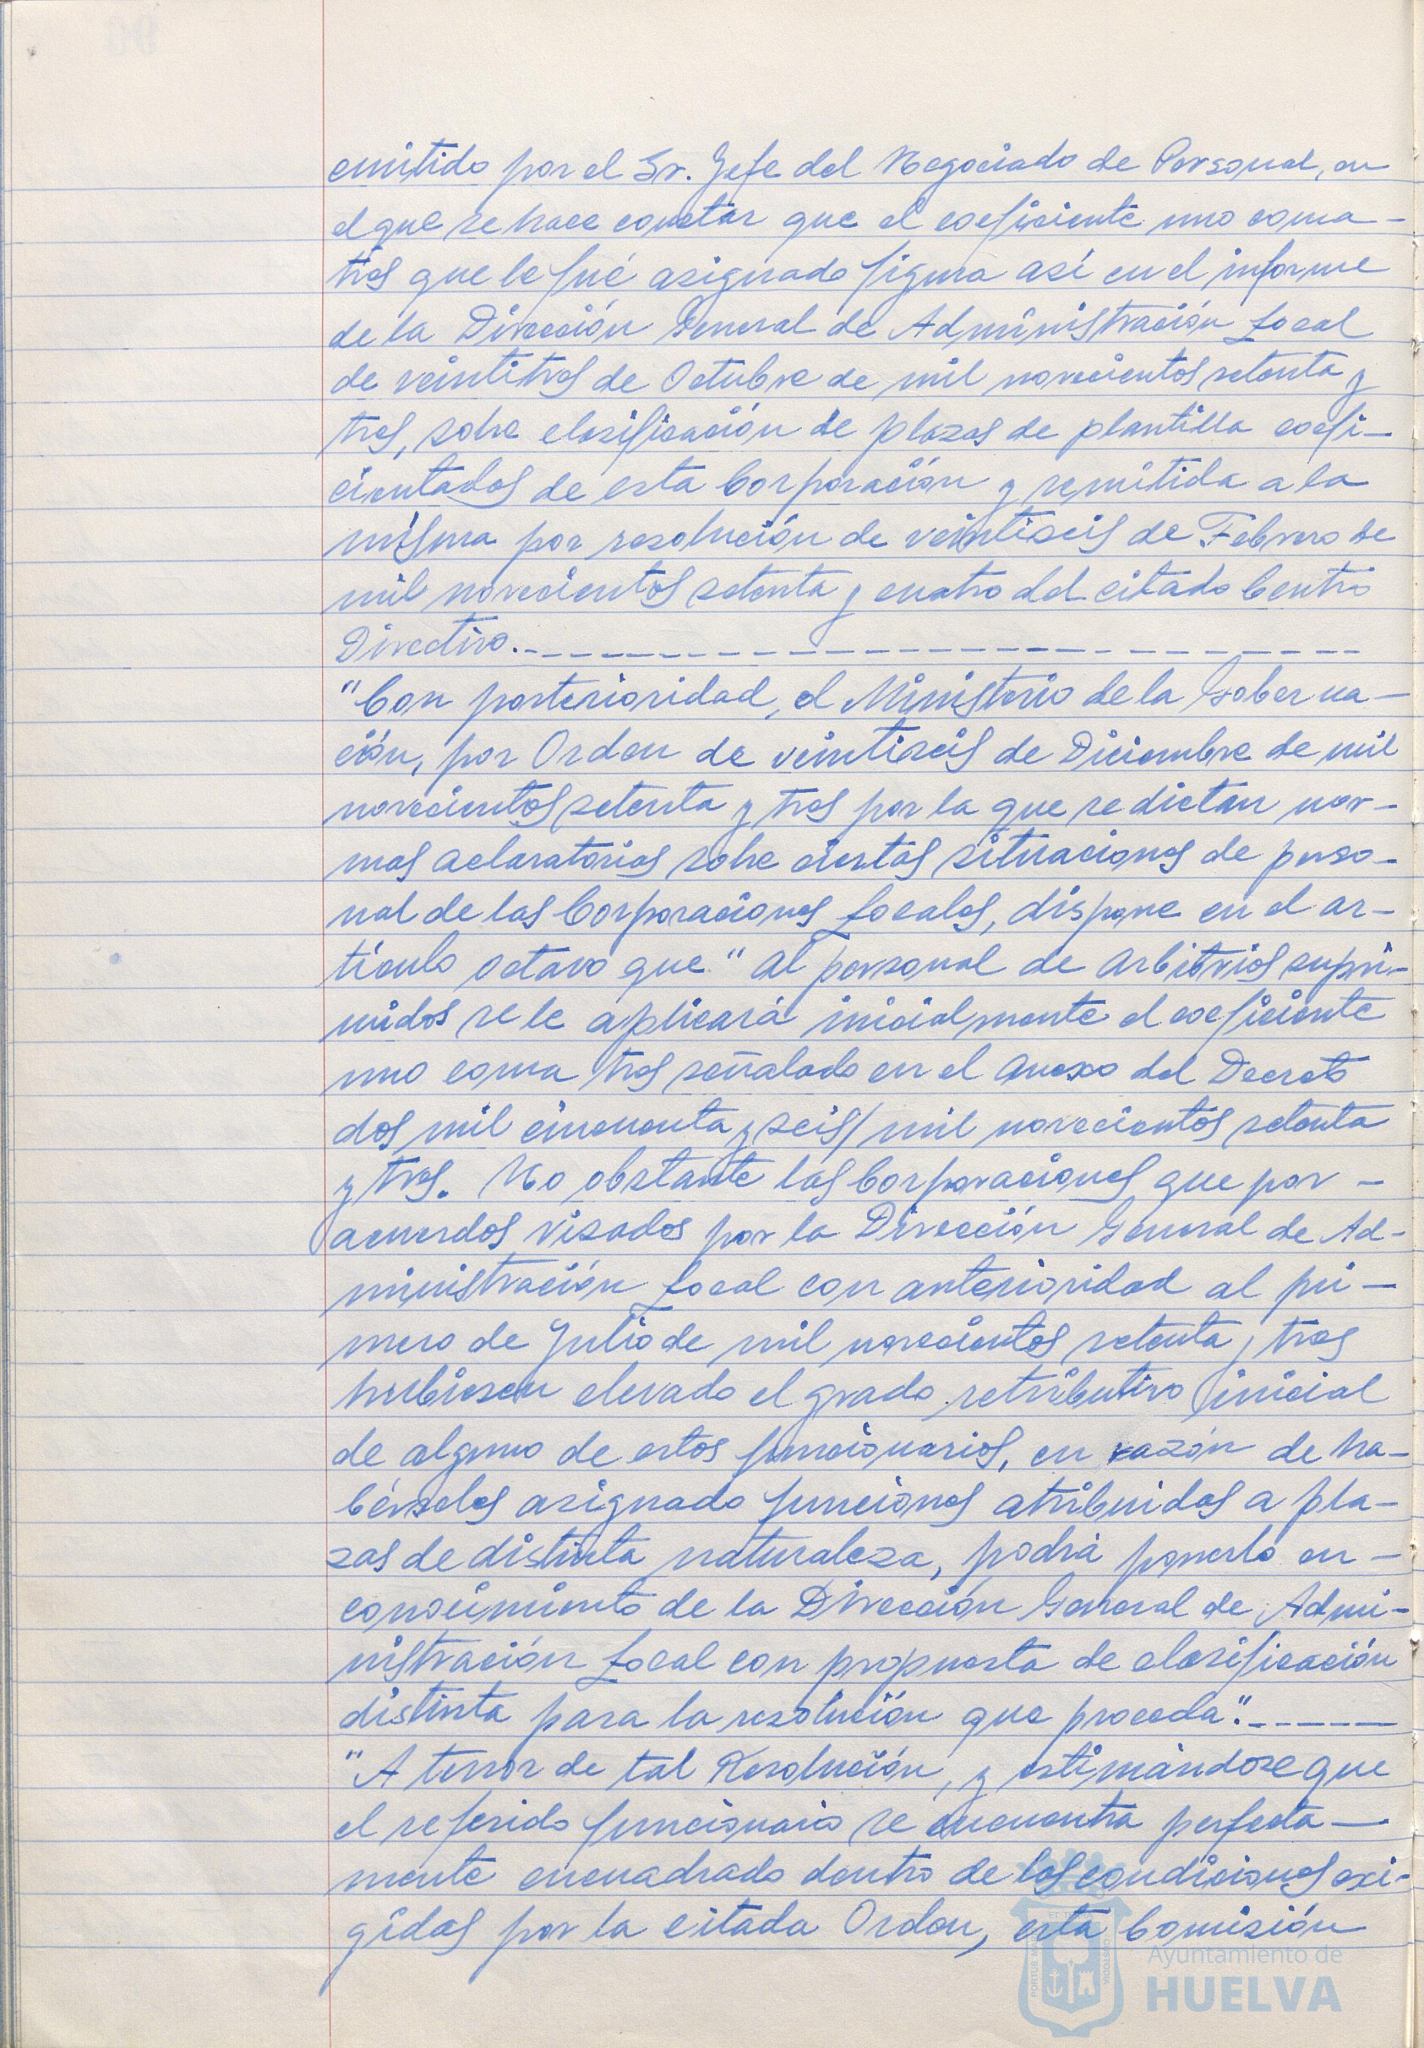 emitido por el Sr. Jefe del Negociado de Personal, en
el que se hace constar que el coeficiente uno coma —
tres que le fué asignado figura así en el informe
de la Dirección General de Administración Local
de veintitres de Octubre de mil novecientos setenta y
tres, sobre clasificación de plazas de plantilla coefi—
cientados de esta Corporación y remitida a la
misma por resolución de veintiseis de Febrero de
mil novecientos setenta y cuatro del citado Centro
Directivo.- — — — — — — — — — — — — — — — — —
"Con posterioridad, el Ministerio de la Goberna—
ción, por Orden de veintiseis de Diciembre de mil
novecientos setenta y tres por la que se dictan nor—
mas aclaratorias sobre ciertas situaciones de perso—
nal de las Corporaciones Locales, dispone en el ar—
tículo octavo que "al personal de arbitrios supri—
midos se le aplicará inicialmente el coeficiente
uno coma tres señalado en el anexo del Decreto
dos mil cincuenta y seis/ mil novecientos setenta
y tres. No obstante las Corporaciones que por —
acuerdos visados por la Dirección General de Ad—
ministración Local con anterioridad al pri—
mero de Julio de mil novecientos setenta y tres
hubiesen elevado el grado retributivo inicial
de alguno de estos funcionarios, en razón de ha—
bérseles asignado funciones atribuidas a pla—
zas de distinta naturaleza, podrá ponerlo en —
conocimiento de la Dirección General de Admi—
nistración Local con propuesta de clasificación
distinta para la resolución que proceda".- — — — —
"A tenor de tal Resolución, y estimándose que
el referido funcionario se encuentra perfecta—
mente encuadrado dentro de las condiciones exi—
gidas por la citada Orden, esta Comisión
Ayuntamiento de
HUELVA